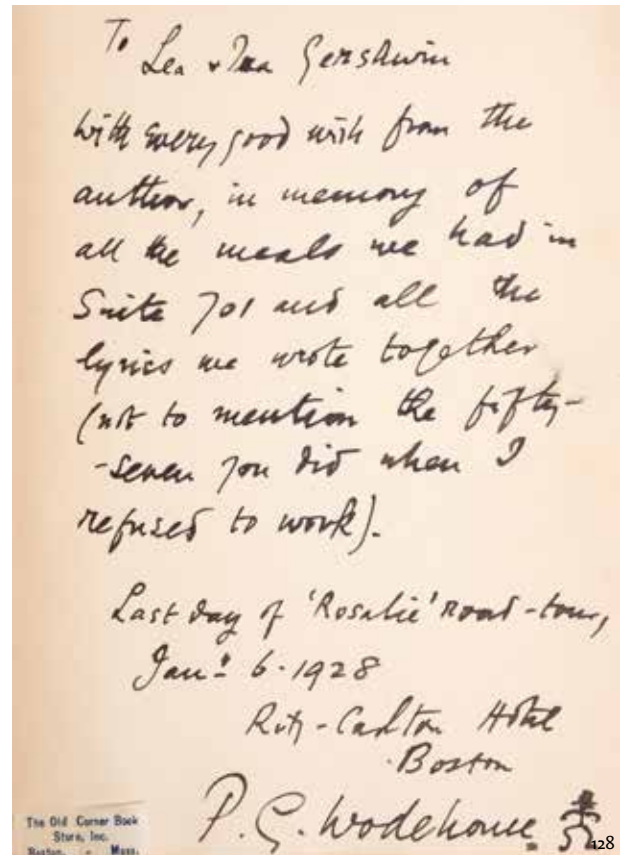 To
Lea & Ira Gershwin
with every good wish from the
author, in memory of
all the meals we had in
Suite 701 and all the
lyrics we wrote together
(not to mention the fifty-
-seven you did when I
refused to work).
Last day of 'Rosalie' road-tour,
Jany 6. 1928
Ritz-Carlton Hotel
Boston
P. G. Wodehouse
The Old Corner Book
Store, Inc.
Boston, - Mass.
128